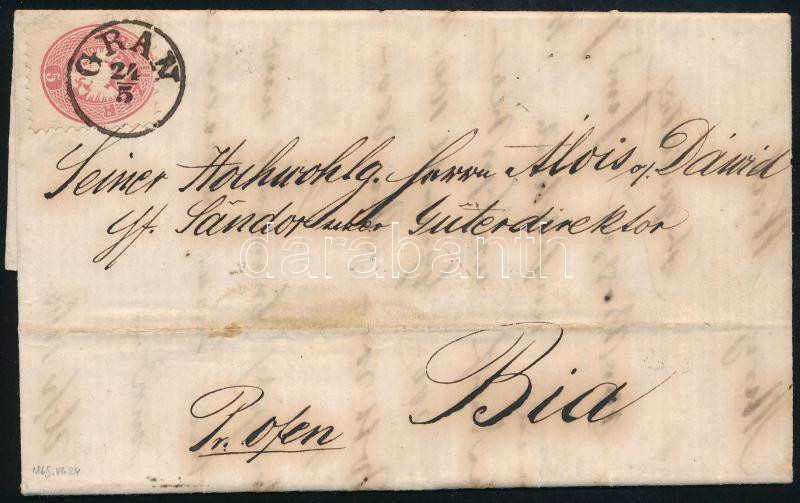 GRAN
24
5
5
Seiner Hochwohlg. Herrn Alois v. Dáwid
gf. Sándor'scher Güterdirektor
darabanth
Bia
Pr. Ofen